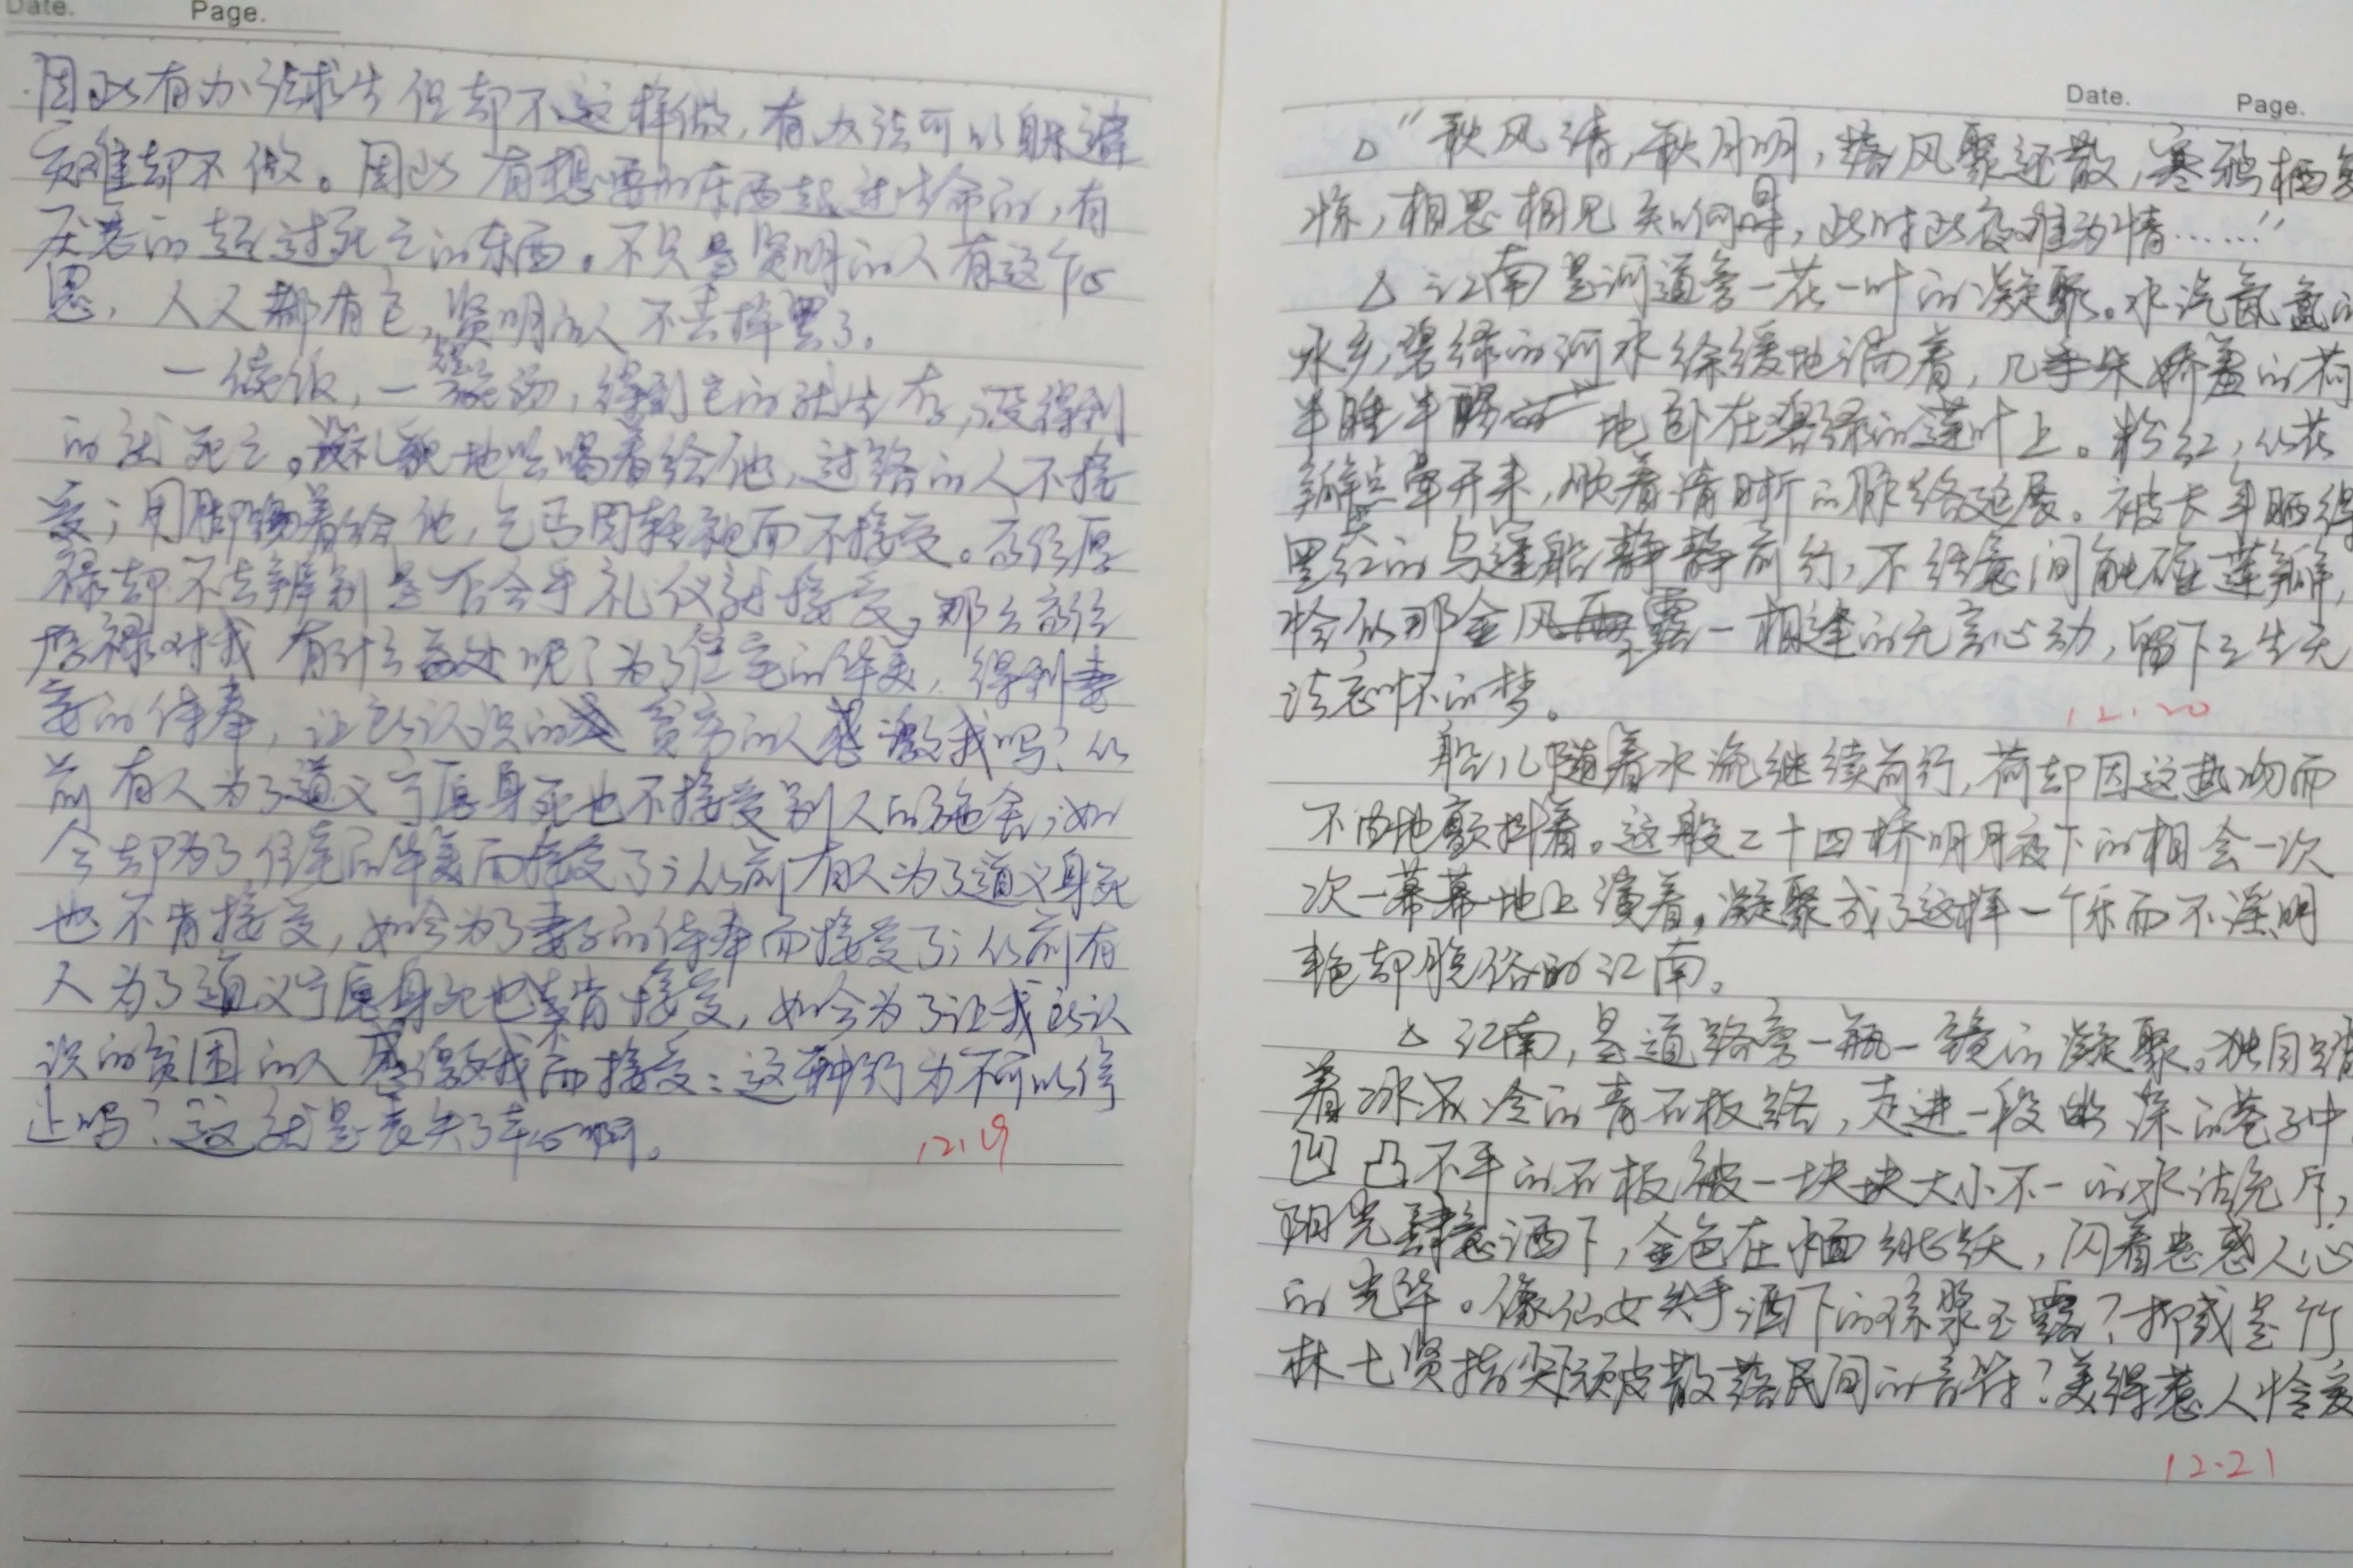 Date. Page.
因此有办法求生但却不这样做，有办法可以躲避
灾难却不做。因此有想要的东西超过生命的，有
厌恶的超过死亡的东西。不只是贤明的人有这个心
思，人人都有它，贤明的人不丢掉罢了。
一筷饭，一碗汤，得到它的就生存，没得到
的就死亡。没礼貌地吆喝着给他，过路的人不接
受；用脚踢着给他，乞丐因轻视而不接受。高位厚
禄却不去辨别是否合乎礼仪就接受，那么高位
厚禄对我有什么益处呢？为了住宅的华美，得到妻
妾的侍奉，让所认识的贫穷的人感激我吗？从
前有人为了道义宁愿身死也不接受别人的施舍；如
今却为了住宅的华美而接受了；从前有人为了道义身死
也不肯接受，如今为了妻子的侍奉而接受了；从前有
人为了道义宁愿身死也不肯接受，如今为了让我所认
识的贫困的人感激我而接受：这种行为不可以停
止吗？这就是丧失了本心啊。
12.19
Date. Page.
△“秋风清，秋月明，落风聚还散，寒鸦栖复
惊，相思相见知何日，此时此夜难为情……”
△江南是河道旁一花一叶的凝聚。水汽氤氲的
水乡，碧绿的河水徐缓地淌着，几朵娇羞的荷
半睡半醒地卧在碧绿的莲叶上。粉红，从花
瓣点晕开来，顺着清晰的脉络延展。被长年晒得
黑红的乌篷船静静前行，不经意间触碰莲瓣，
恰似那金风玉露一相逢的无言心动，留下三生无
法忘怀的梦。
12.20
船儿随着水流继续前行，荷却因这些吻而
不由地颤抖着。这般二十四桥明月夜下的相会一次
次一幕幕地上演着，凝聚成了这样一个乐而不淫，明
艳却脱俗的江南。
△江南，是道路旁一瓶一镜的凝聚。独自踏
着冰冷的青石板路，走进一段幽深的巷子中，
凹凸不平的石板被一块块大小不一的水洼充斥，
阳光肆意洒下，金色在水面跳跃，闪着蛊惑人心
的光华。像仙女失手洒下的琼浆玉露？抑或是竹
林七贤指尖顽皮散落民间的音符？美得惹人怜爱
12.21